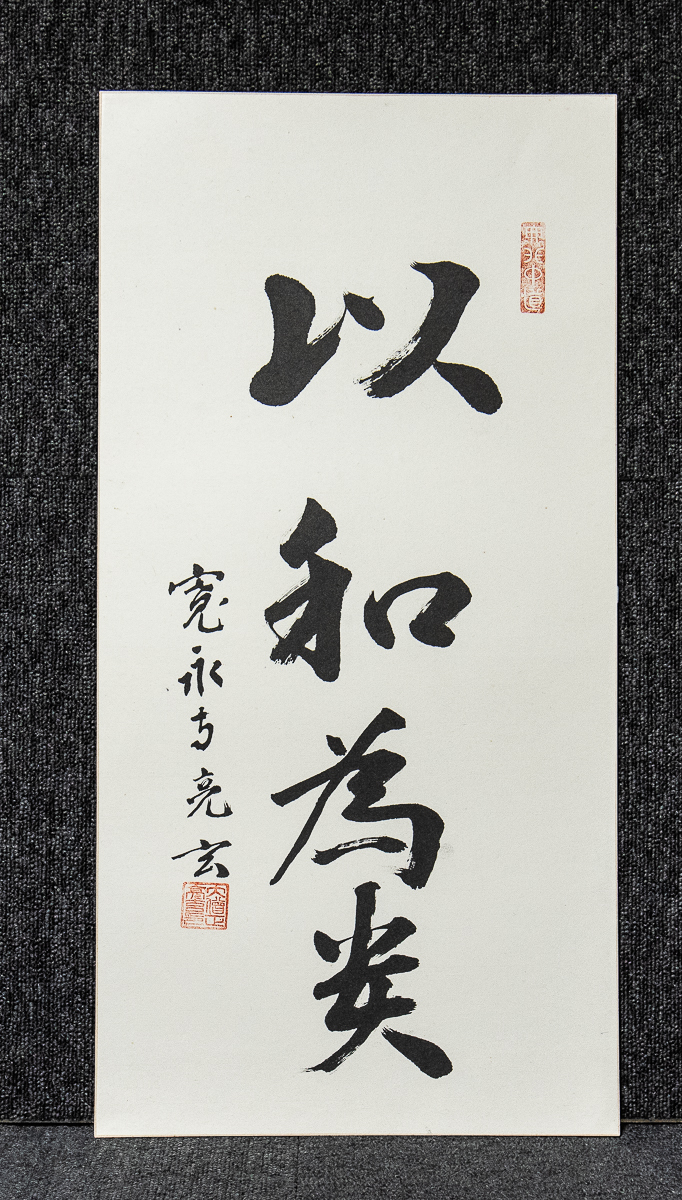 以和為貴
寛永寺亮玄